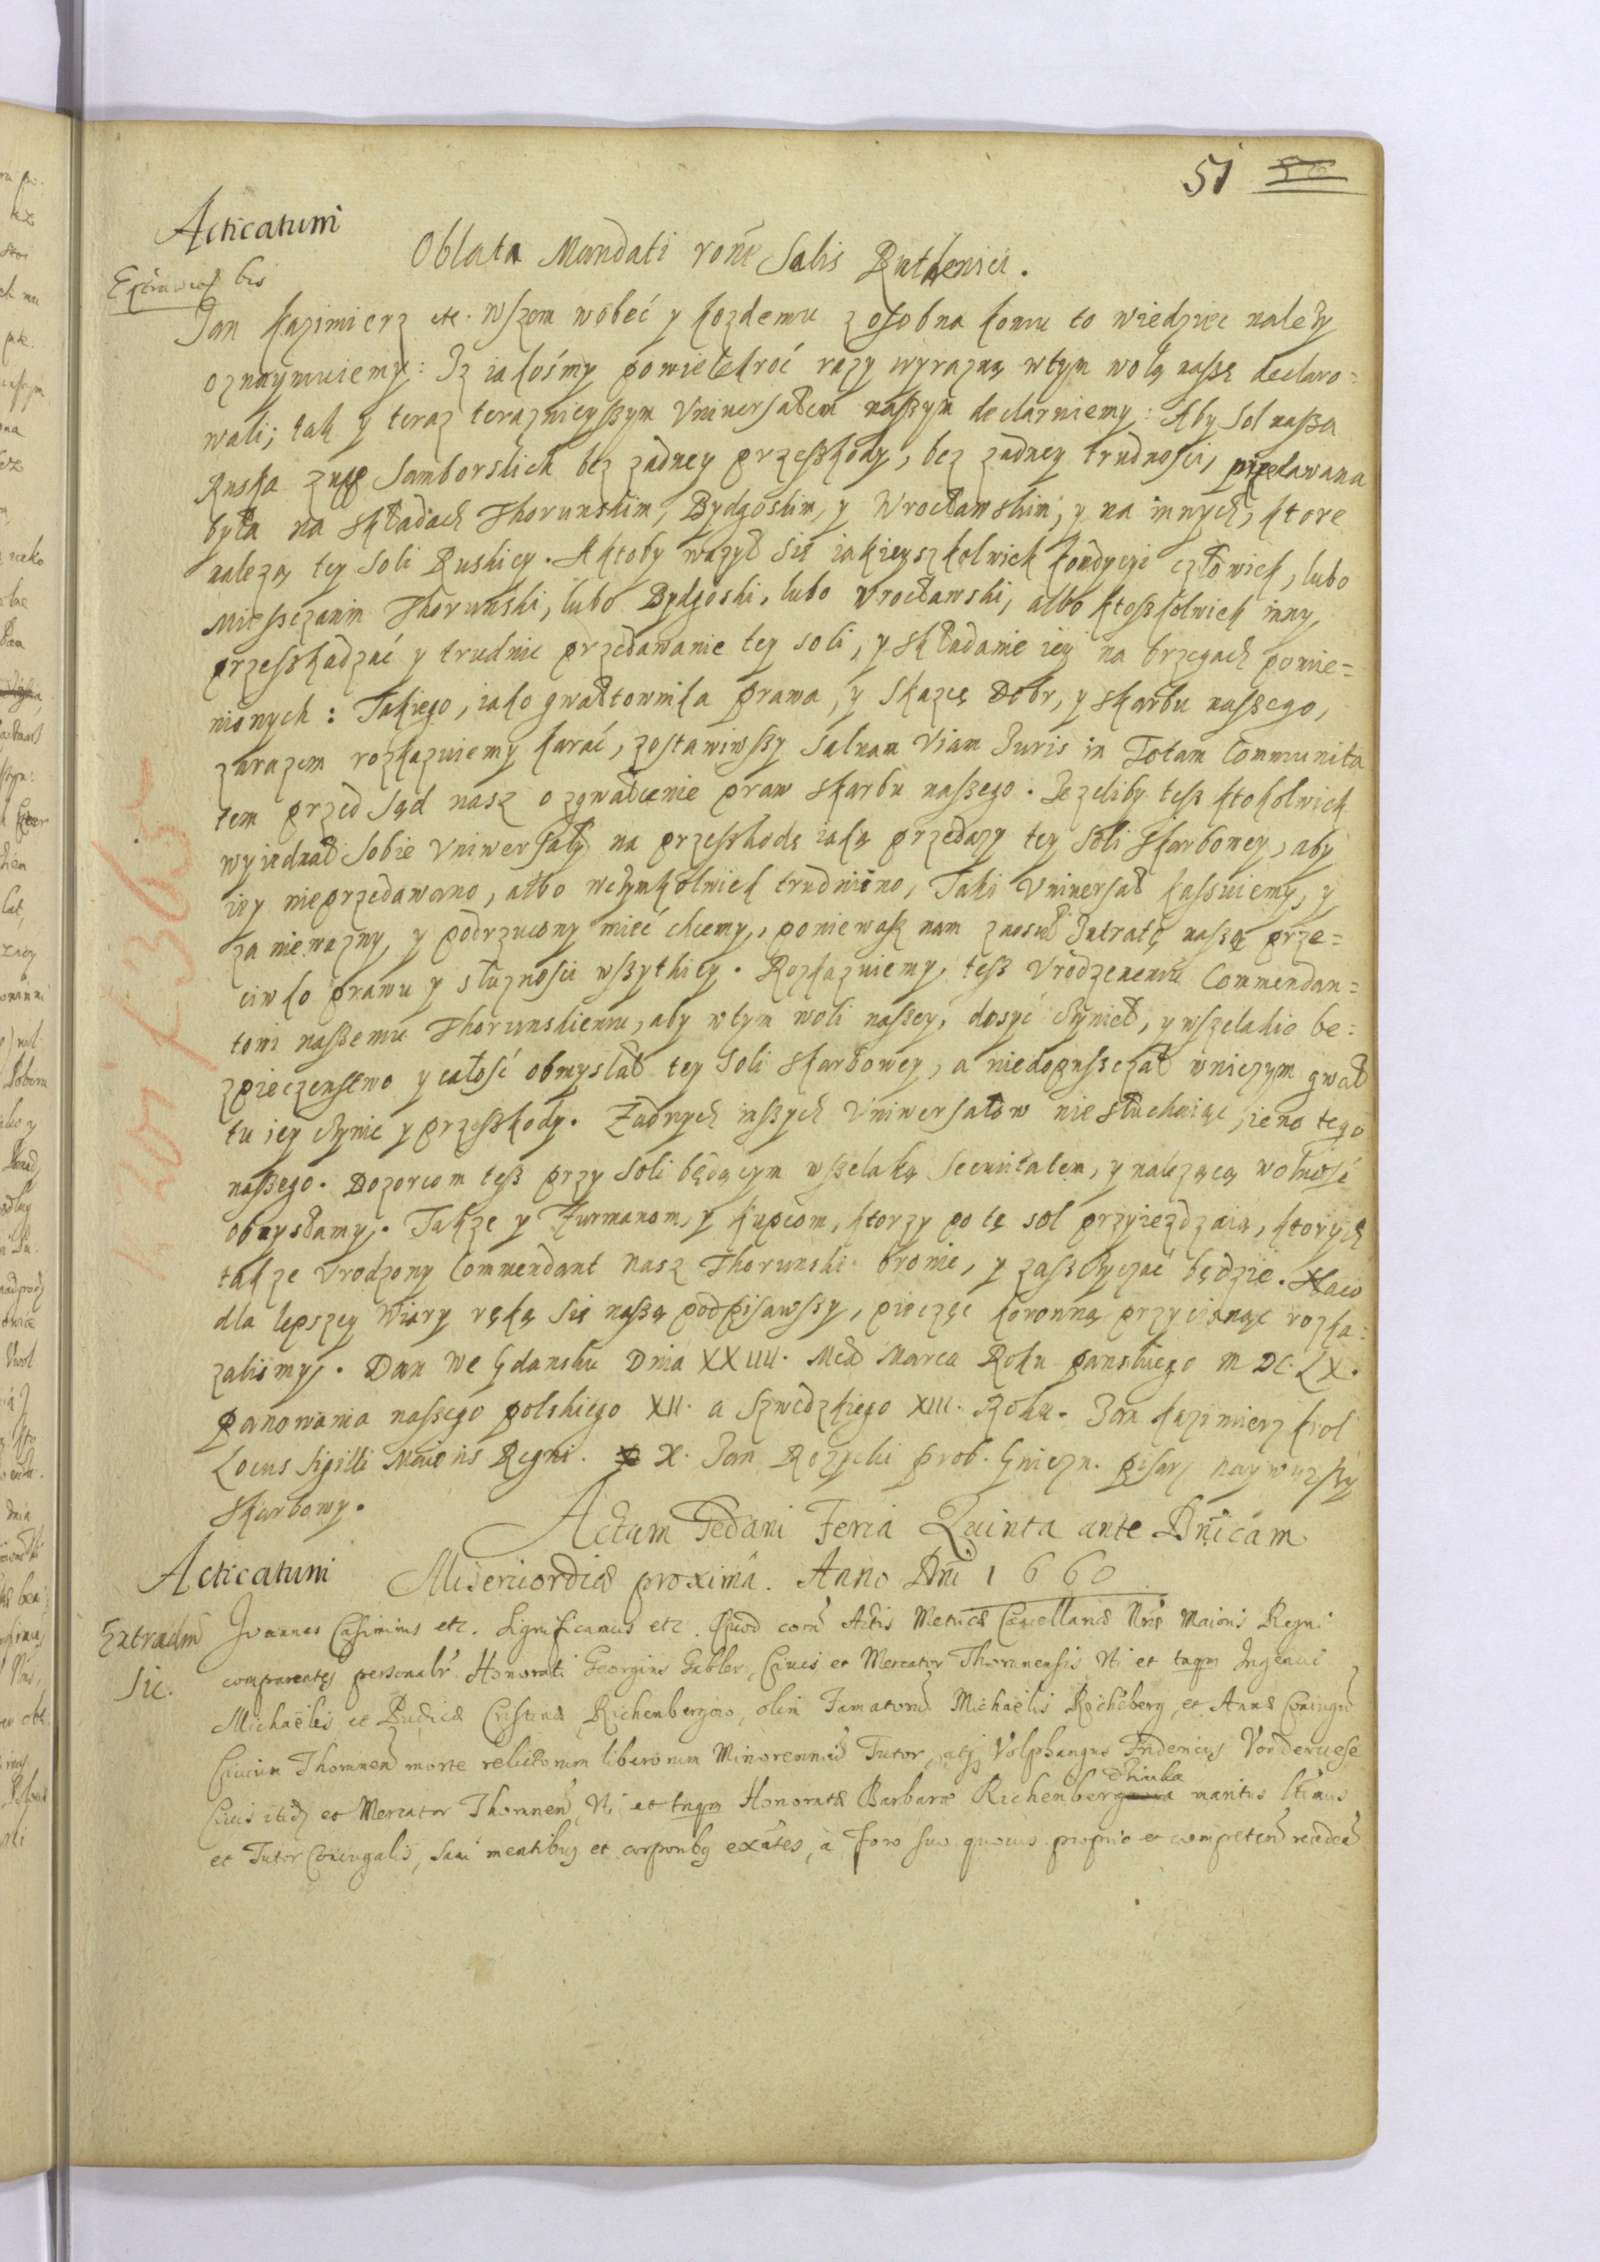 51 50
Acticatum
Oblata Mandati rōne Salis Ruthenici.
bis
Jan Kazimierz etc. wszem wobec y kozdemu zosobna komu to wiedziec nalezy
oznaymuiemy: Iz iakosmy powielekroć razy wyrazną wtym wolą naszę declaro=
wali; tak y teraz teraznieyszym Vniwersałem naszym declaruiemy: Aby Sol nasza
Ruska zupp Samborskich bez zadney przeszkody, bez zadney trudnosci, przedawana
była na składach Thorunskim, Bydgoskim, y Wrocławskim, y na innych, ktore
nalezą tey Soli Ruskiey. A ktoby wazył sie iakieyszkolwiek kondycyi człowiek, lubo
Mieszczanin Thorunski, lubo Bydgoski, lubo Wrocławski, albo ktoszkolwiek inny,
przeszkadzać y trudnic przedawanie tey soli, y składanie iey na brzegach pomie=
nionych: Takiego, iako gwałtownika prawa, y Skazcę Dobr, y skarbu naszego,
zarazem rozkazuiemy karać, zostawiwszy Saluam Viam Juris in Totam Communita
tem przed Sąd nasz o zgwałcenie praw skarbu naszego. Jezeliby tesz ktokolwiek
wyiednał Sobie Vniwersały na przeszkodę iaką przedazy tey Soli skarbowey, aby
iey nieprzedawano, albo wczymkolwiek trudniono, Taki Vniwersał kassuiemy, y
za niewazny, y podrzucony mieć chcemy, poniewasz nam znosił Intratę naszę prze=
ciwko prawu y słuznosci wszytkiey. Rozkazuiemy tesz Vrodzenemu Commendan=
towi naszemu Thorunskiemu, aby wtym woli naszey, dosyć czynieł, y wszelakie be=
zpieczenstwo y całość obmyslał tey Soli skarbowey, a niedopuszczał wniczym gwał
tu iey czynic y przeszkody. Zadnych inszych Vniwersałow nie słuchaiąc, ieno tego
naszego. Dozorcom tesz przy Soli będącym wszelaką Securitatem, y nalezącą wolność
obmyslamy. Takze y Furmanom, y kupcom, ktorzy po tę sol przyiezdzaią, ktorych
takze Vrodzony Commendant nasz Thorunski bronic, y zaszczyczać będzie. Naco
dla lepszey Wiary ręką Sie naszą podpisawszy, pieczęc koronną przycisnąc rozka=
zalismy. Dan we Gdansku Dnia XXIIII. Mca Marca Roku panskiego M DC. LX.
panowania naszego polskiego XII. a Szwedzkiego XIII. Roku. Jan Kazimierz krol
Locus Sigilli Maioris Regni. X. Jan Rozycki prob. Gniezn. pisarz naywyzszy
skarbowy.
Actum Gedani Feria Quinta ante Dnicam
Acticatum
Misericordiæ proximâ. Anno Dni 1660
Extradm
Sic.
Joannes Casimirus etc. Significamus etc. Quod coram Actis Metricæ Cancellariæ Nræ Maioris Regni
comparentes personalr Honorati Georgius Gabler, Civis et Mercator Thorunensis, Uti et tnqm Ingenui
Michaëlis et Pudicæ Cristinæ Richenbergow, olim Famatorum Michaëlis Richeberg, et Annæ Coniugum
Civium Thorunen morte relictorum liberorum Minorennium Tutor, atq Volphangus Fridericus Vonderuese
Civis itid et Mercator Thorunen, Uti et tnqm Honoratæ Barbaræ Richenbergowna maritus ltimus
et Tutor Coniugalis, Sani mentibus et corporibq exātes, a foro suo quouis proprio et competen receden